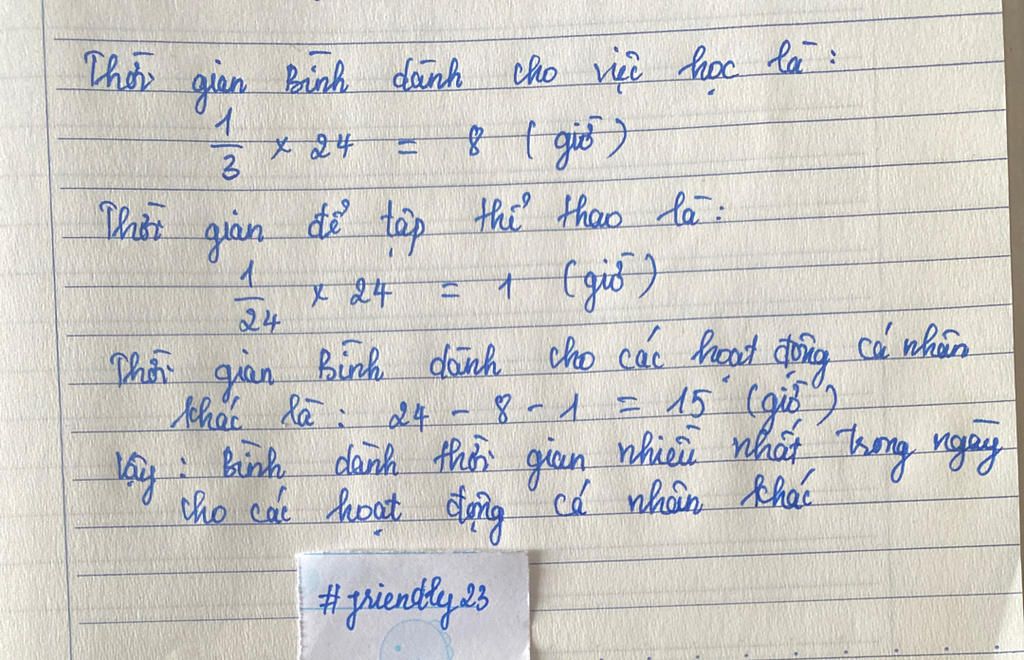 Thời gian Bình dành cho việc học là:
1/3 × 24 = 8 (giờ)
Thời gian để tập thể thao là:
1/24 × 24 = 1 (giờ)
Thời gian Bình dành cho các hoạt động cá nhân
khác là: 24 - 8 - 1 = 15 (giờ)
Vậy: Bình dành thời gian nhiều nhất trong ngày
cho các hoạt động cá nhân khác
#friendly23